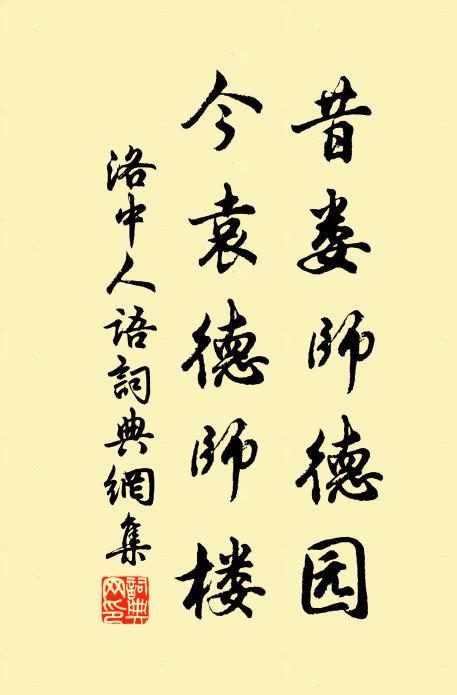 昔娄师德园
今袁德师楼
洛中人语詞典網集
詞典網印